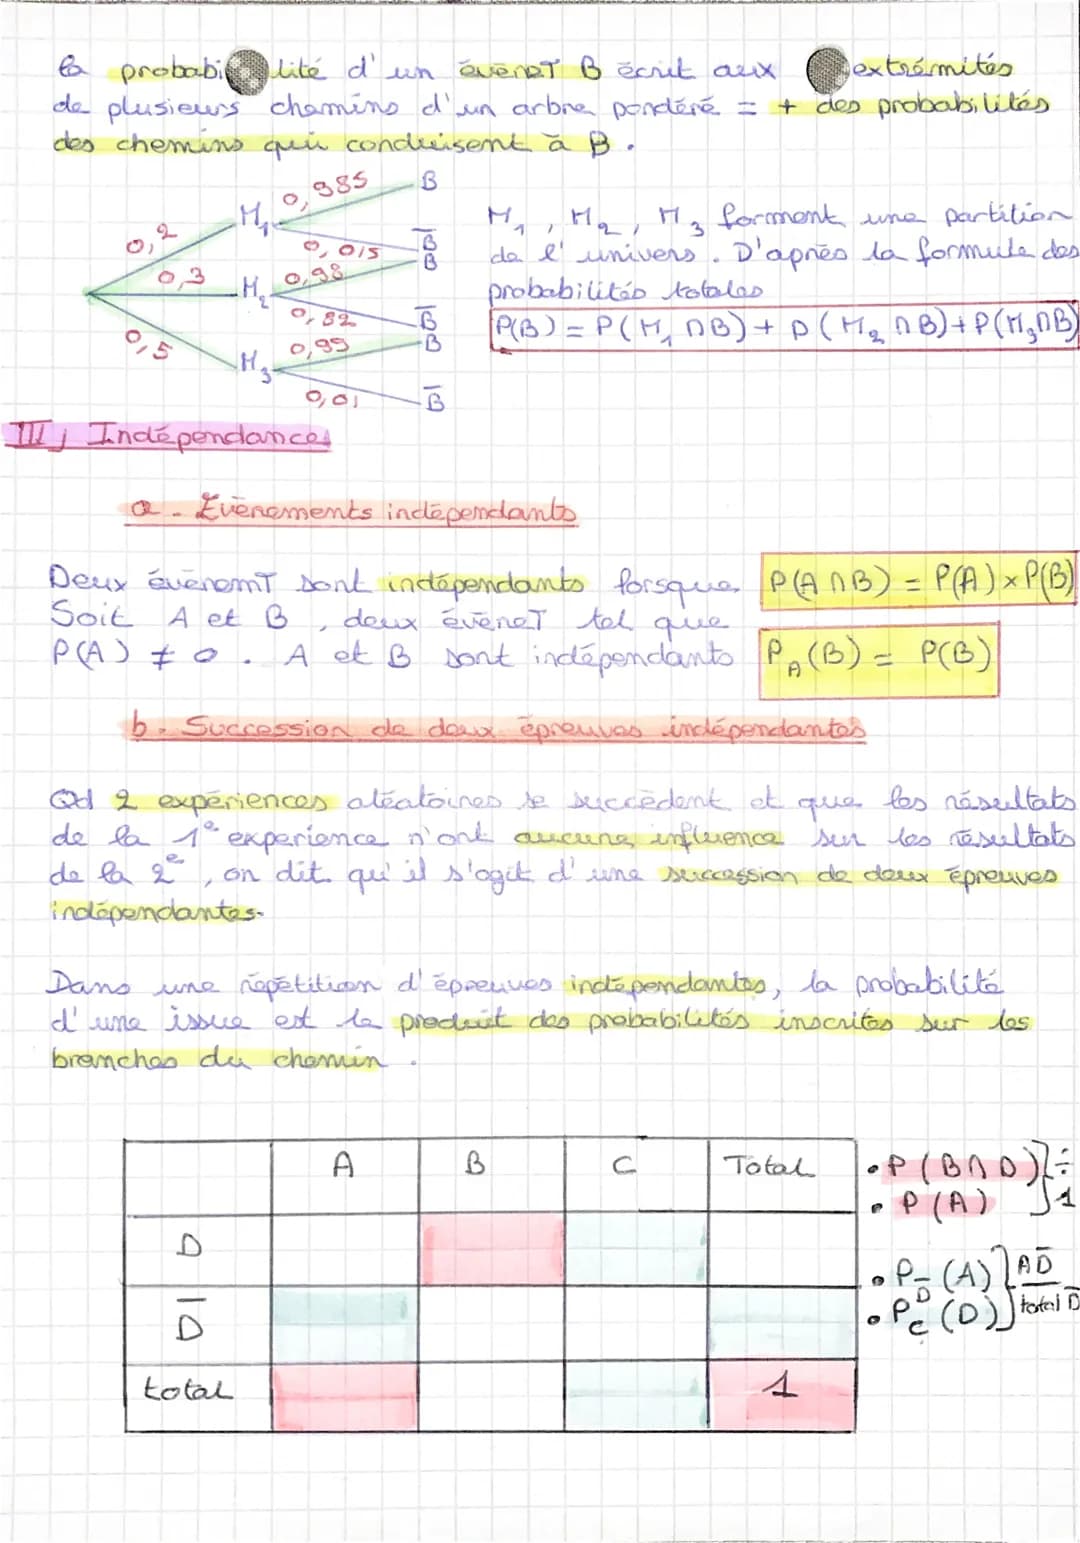 la probabilité d'un évèneT B écrit aux extrémités
de plusieurs chemins d'un arbre pondéré = + des probabilités
des chemins qui conduisent à B.
0,2
0,3
0,5
M₁
M₂
M₃
0,985 B
0,015 B̅
0,98 B
0,82 B̅
0,99 B
0,01 B̅
M₁, M₂, M₃ forment une partition
de l'univers. D'après la formule des
probabilités totales
P(B) = P(M₁ ∩B) + P(M₂ ∩B)+P(M₃∩B)
III, Indépendances
a. Evènements indépendants
Deux évènemT sont indépendants lorsque P(A∩B) = P(A)×P(B)
Soit A et B, deux évèneT tel que
P(A) ≠ 0. A et B sont indépendants P_A(B) = P(B)
b. Succession de deux épreuves indépendantes
Qd 2 expériences aléatoires se succèdent et que les résultats
de la 1ᵉ experience n'ont aucune influence sur les résultats
de la 2ᵉ, on dit qu'il s'agit d'une succession de deux épreuves
indépendantes.
Dans une répétition d'épreuves indépendantes, la probabilité
d'une issue est le produit des probabilités inscrites sur les
branches du chemin.
A B C Total
D
D̅
total 1
• P(B∩D) } ÷
• P(A) } 1
• P_D̅(A) } AD̅
• P_C(D) } total D̅